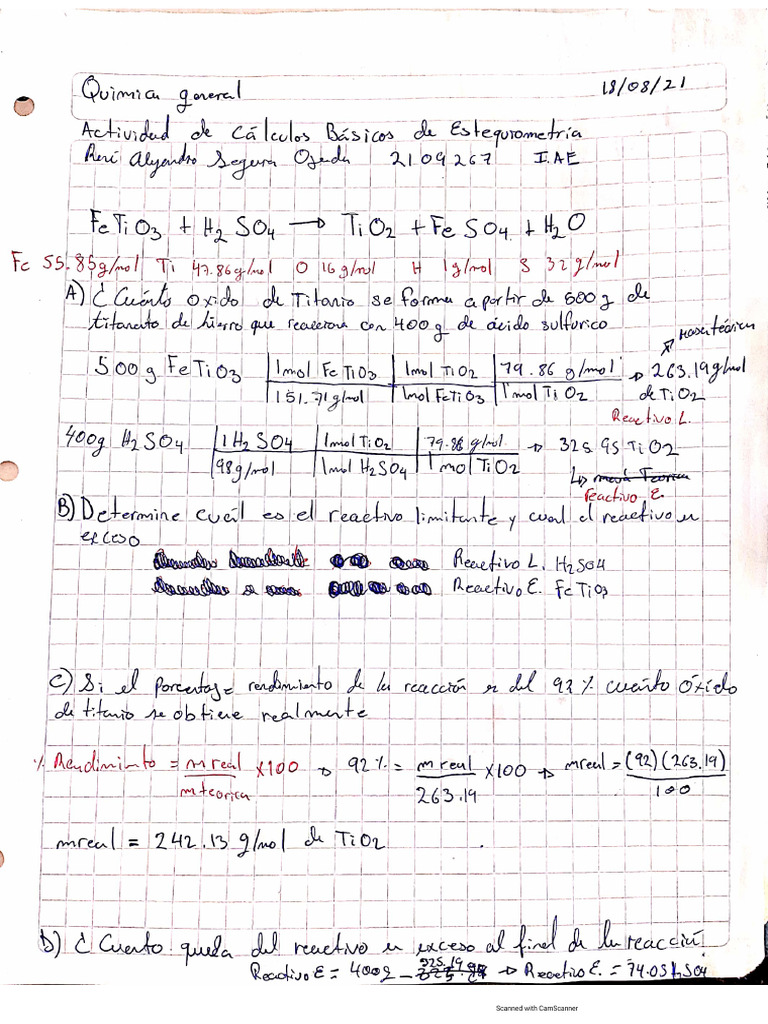 Química general 18/08/21
Actividad de Cálculos Básicos de Estequiometría
René Alejandro Segura Ojeda 2109267 IAE
FeTiO3 + H2SO4 → TiO2 + FeSO4 + H2O
Fe 55.85g/mol Ti 47.86g/mol O 16g/mol H 1g/mol S 32g/mol
A) ¿Cuánto Oxido de Titanio se forma a partir de 500g de
titanato de hierro que reacciona con 400g de ácido sulfurico
Masa teórica
500g FeTiO3 | 1mol FeTiO3 | 1mol TiO2 | 79.86 g/mol → 263.19g/mol
151.71g/mol | 1mol FeTiO3 | 1mol TiO2 de TiO2
Reactivo L.
400g H2SO4 | 1 H2SO4 | 1mol TiO2 | 79.86 g/mol → 325.95 TiO2
98g/mol | 1mol H2SO4 | 1mol TiO2
↳ masa Teorica
reactivo E.
B) Determine cuál es el reactivo limitante y cual el reactivo en
exceso
Reactivo L. H2SO4
Reactivo E. FeTiO3
C) Si el porcentaje rendimiento de la reacción es del 92% cuánto óxido
de titanio se obtiene realmente
% Rendimiento = m real / m teorica x100 → 92% = m real / 263.19 x100 → mreal = (92)(263.19) / 100
mreal = 242.13 g/mol de TiO2
D) ¿Cuanto queda del reactivo en exceso al final de la reacción
Reactivo E = 400g - 325.19 → Reactivo E. = 74.05 H2SO4